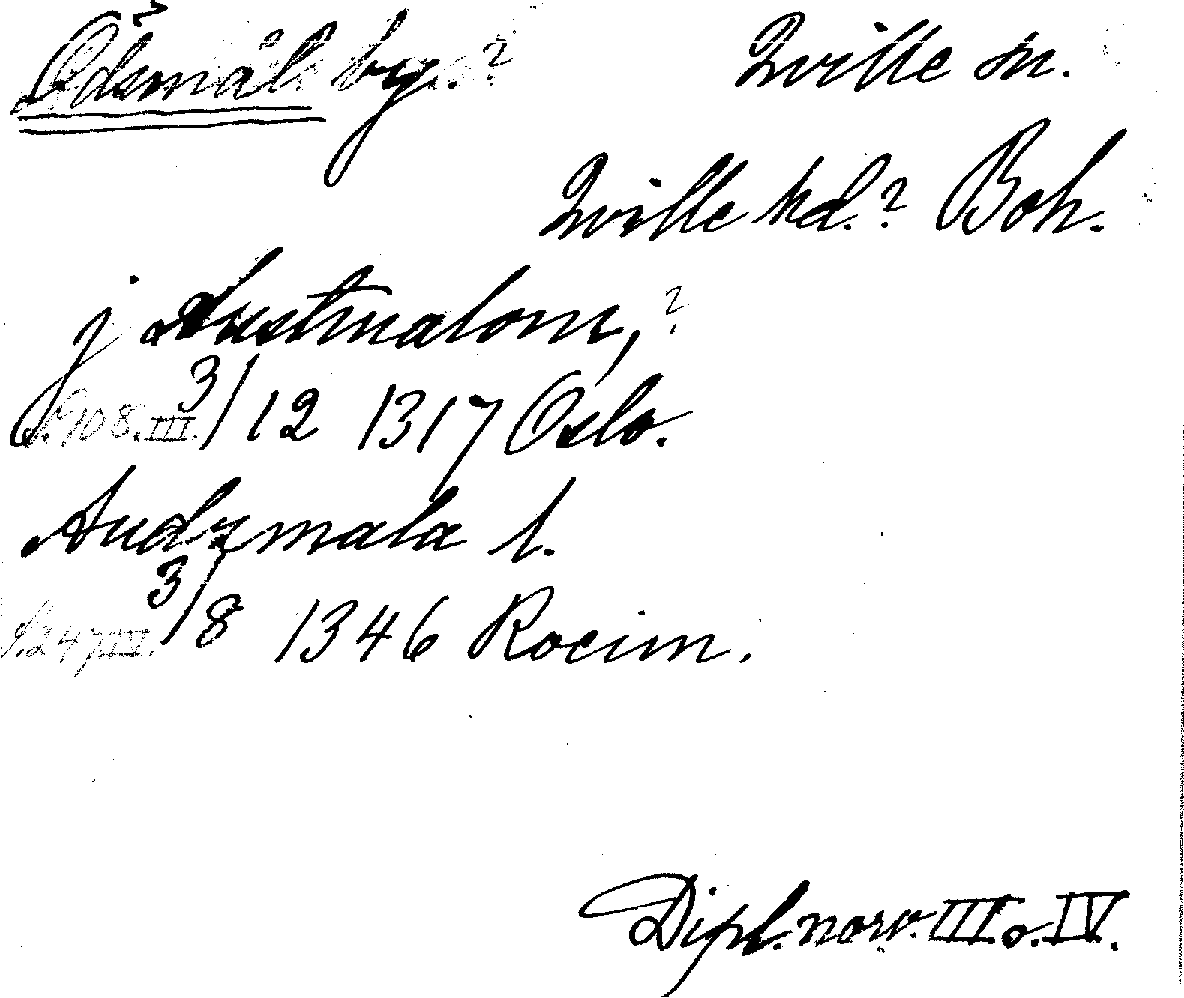 Ödsmåls by.? Qville sn.
Qville hd.? Boh.
j Austmalom,?
S. 108. III. 3/12 1317 Oslo.
Audzmala l.
S. 247 IV. 3/8 1346 Rocim.
Dipl. norv. III o. IV.